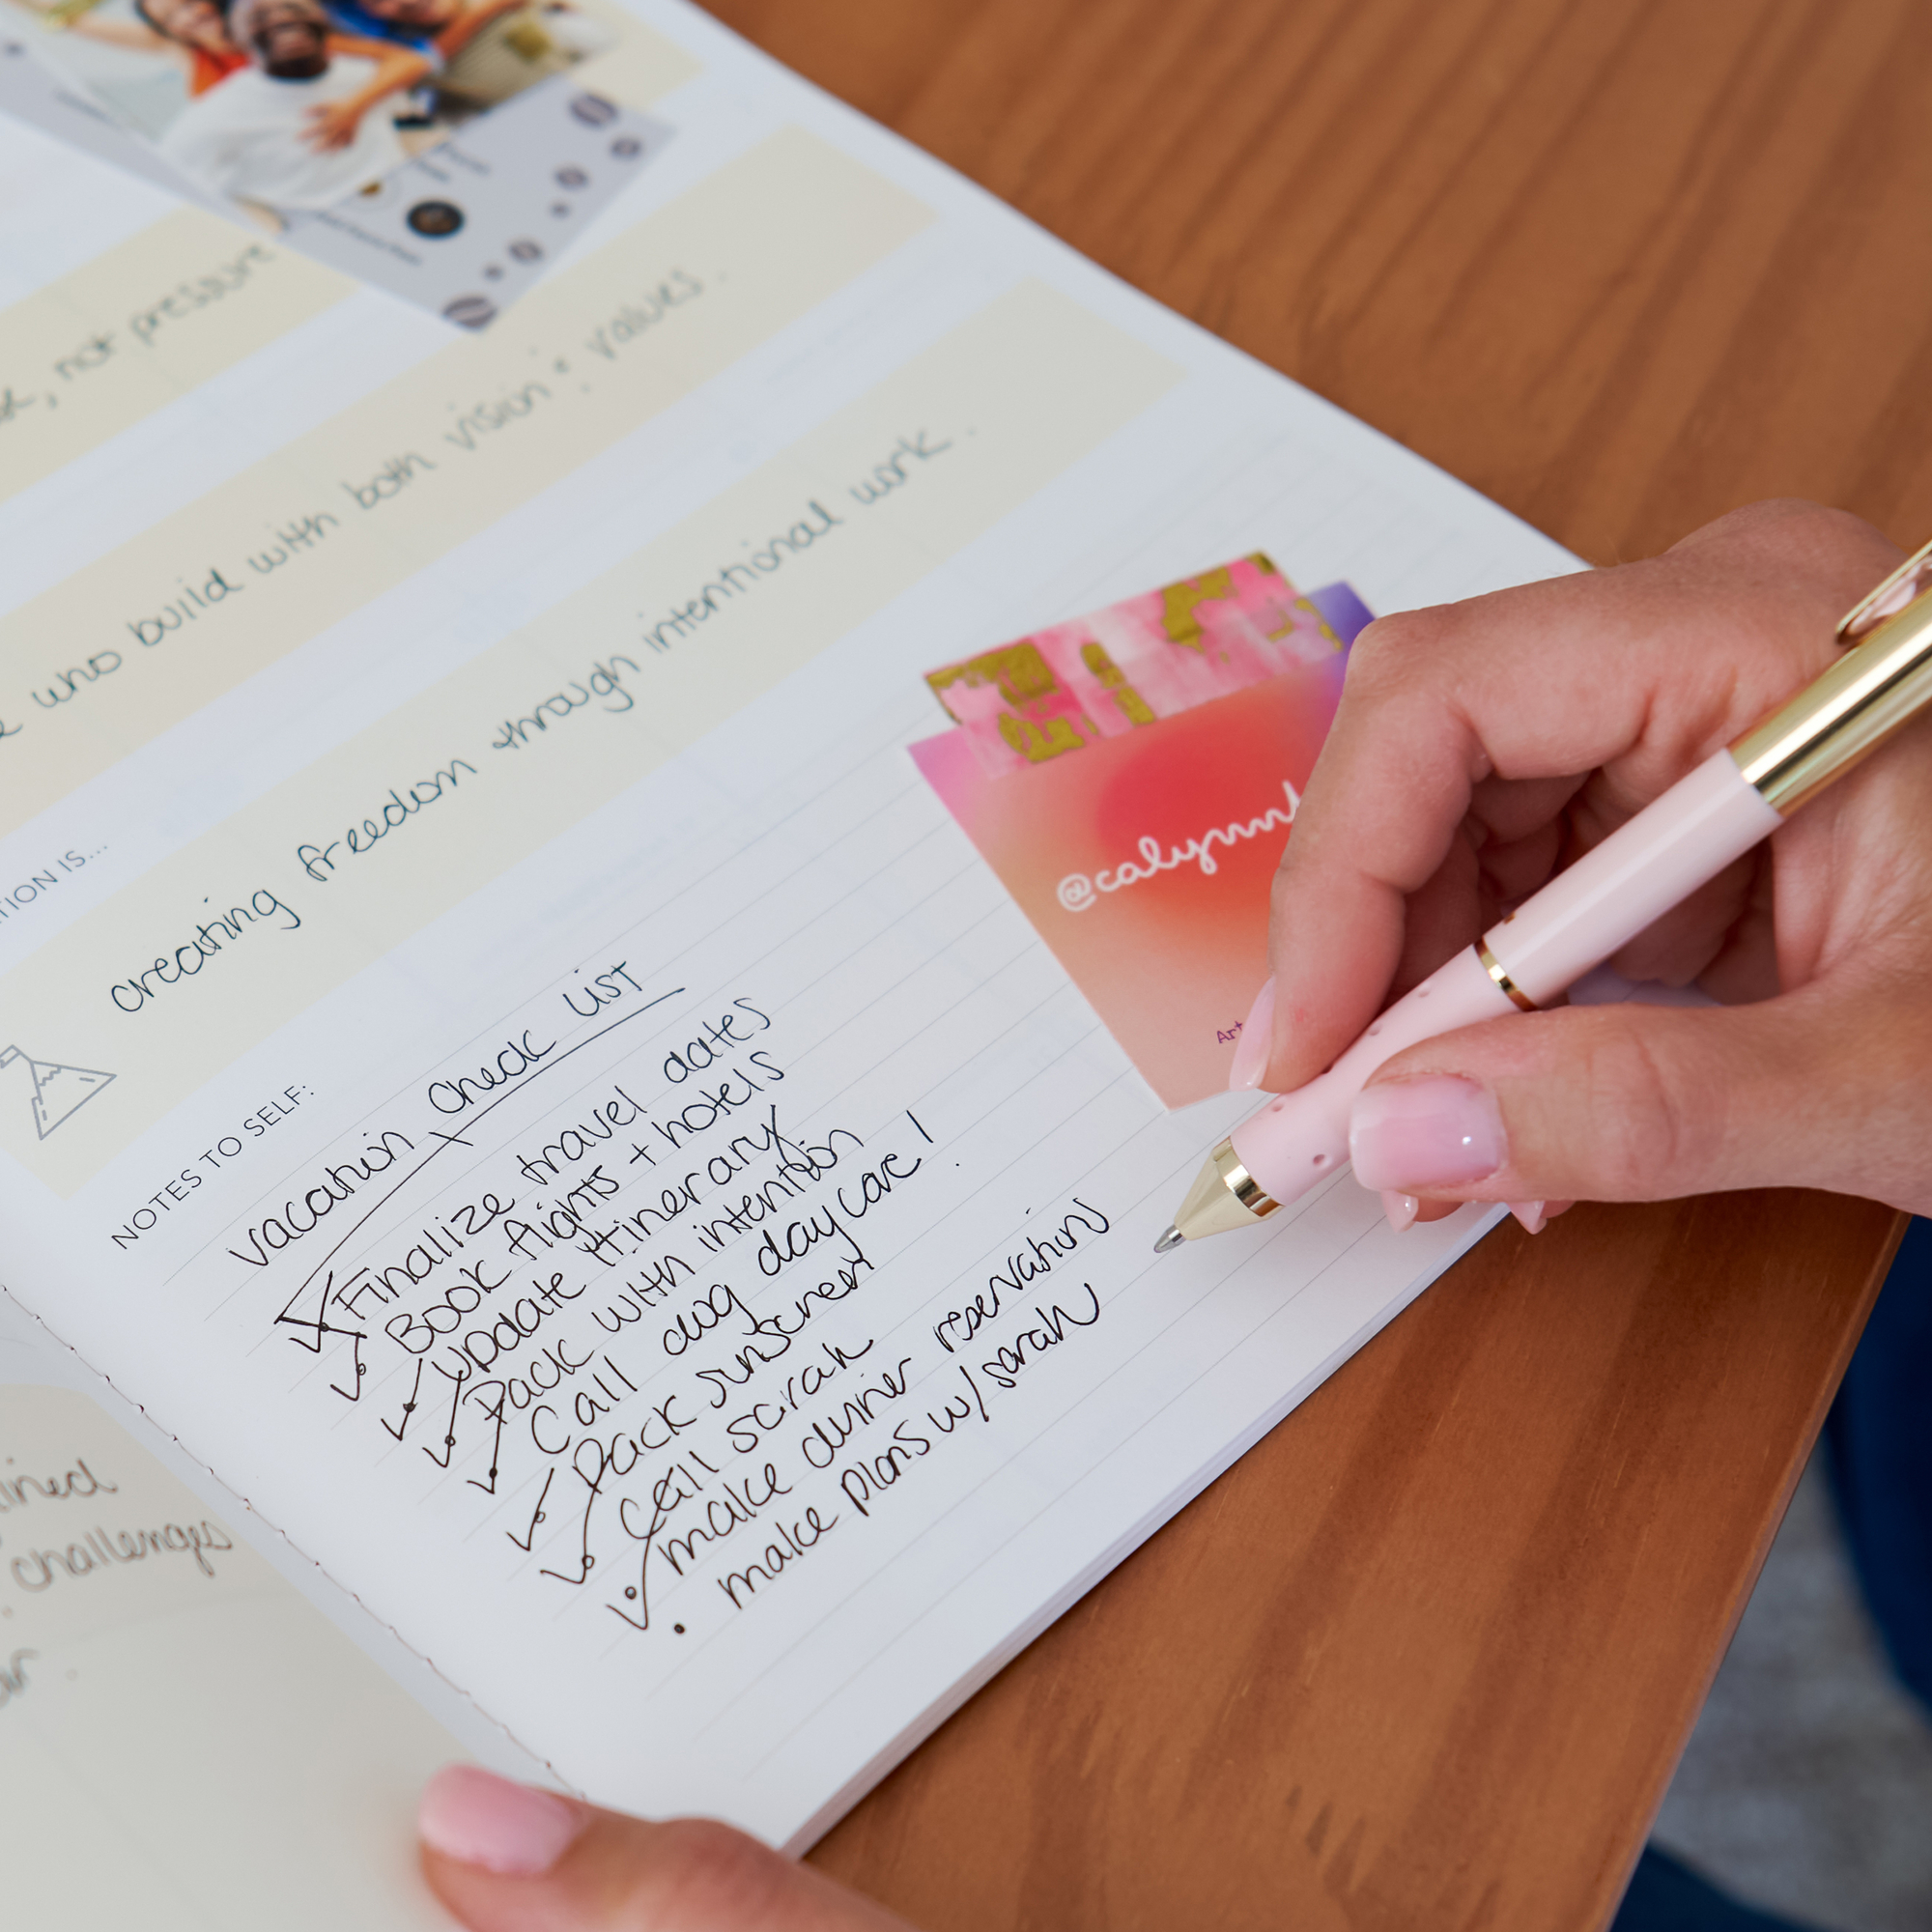 , not pressure
who build with both vision & values.
TION IS...
creating freedom through intentional work.
@calynn
Art
NOTES TO SELF:
vacation check list
Finalize travel dates
Book flights + hotels
update itinerary
Pack with intention
Call dog daycare!
Pack sunscreen
call sarah
make dinner reservations
make plans w/ sarah
ined
challenges